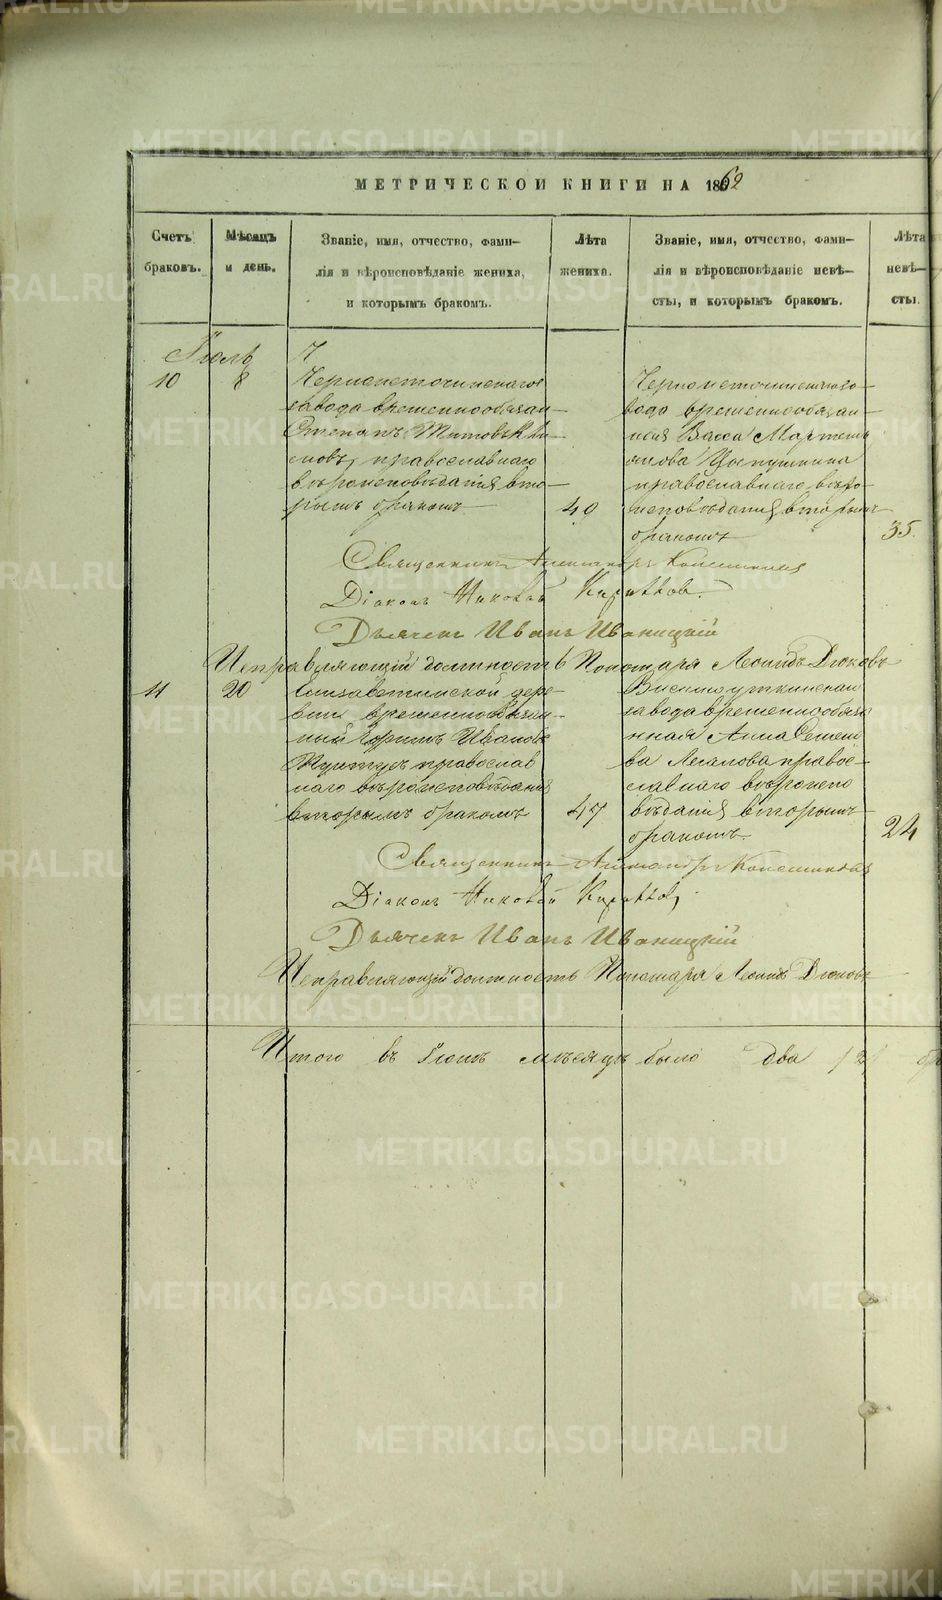 МЕТРИЧЕСКОЙ КНИГИ НА 1862
Счетъ браковъ.
Мѣсяцъ и день.
Званіе, имя, отчество, фами-
лія и вѣроисповѣданіе жениха,
и которымъ бракомъ.
Лѣта
жениха.
Званіе, имя, отчество, фами-
лія и вѣроисповѣданіе невѣ-
сты, и которымъ бракомъ.
Лѣта
невѣ-
сты.
Іюль
10
8
Черноисточинскаго
завода временнообязан-
Степанъ Титовъ
православнаго
вѣроисповѣданія, вто-
рымъ бракомъ
40
Черноисточинскаго за-
вода временнообязан-
ная Васса Мартемь
янова
православнаго вѣро-
исповѣданія, вторымъ
бракомъ
35.
Священникъ Александръ
Діаконъ Николай
Дьячекъ Иванъ Иваницкій
Исправляющій должность Пономаря Леонидъ Дюковъ
11
20
Елизаветинской дере-
вни временнообязан-
ный Ивановъ
православ
наго вѣроисповѣданія
вторымъ бракомъ
47
Висимоуткинскаго
завода временнообяза
нная Анна Семено
ва правос-
лавнаго вѣроиспо
вѣданія вторымъ
бракомъ.
24
Священникъ Александръ
Діаконъ Николай
Дьячекъ Иванъ Иваницкій
Исправляющій должность Пономаря Леонидъ Дюковъ
Итого въ Іюлѣ мѣсяцѣ было два /2/
METRIKI.GASO-URAL.RU